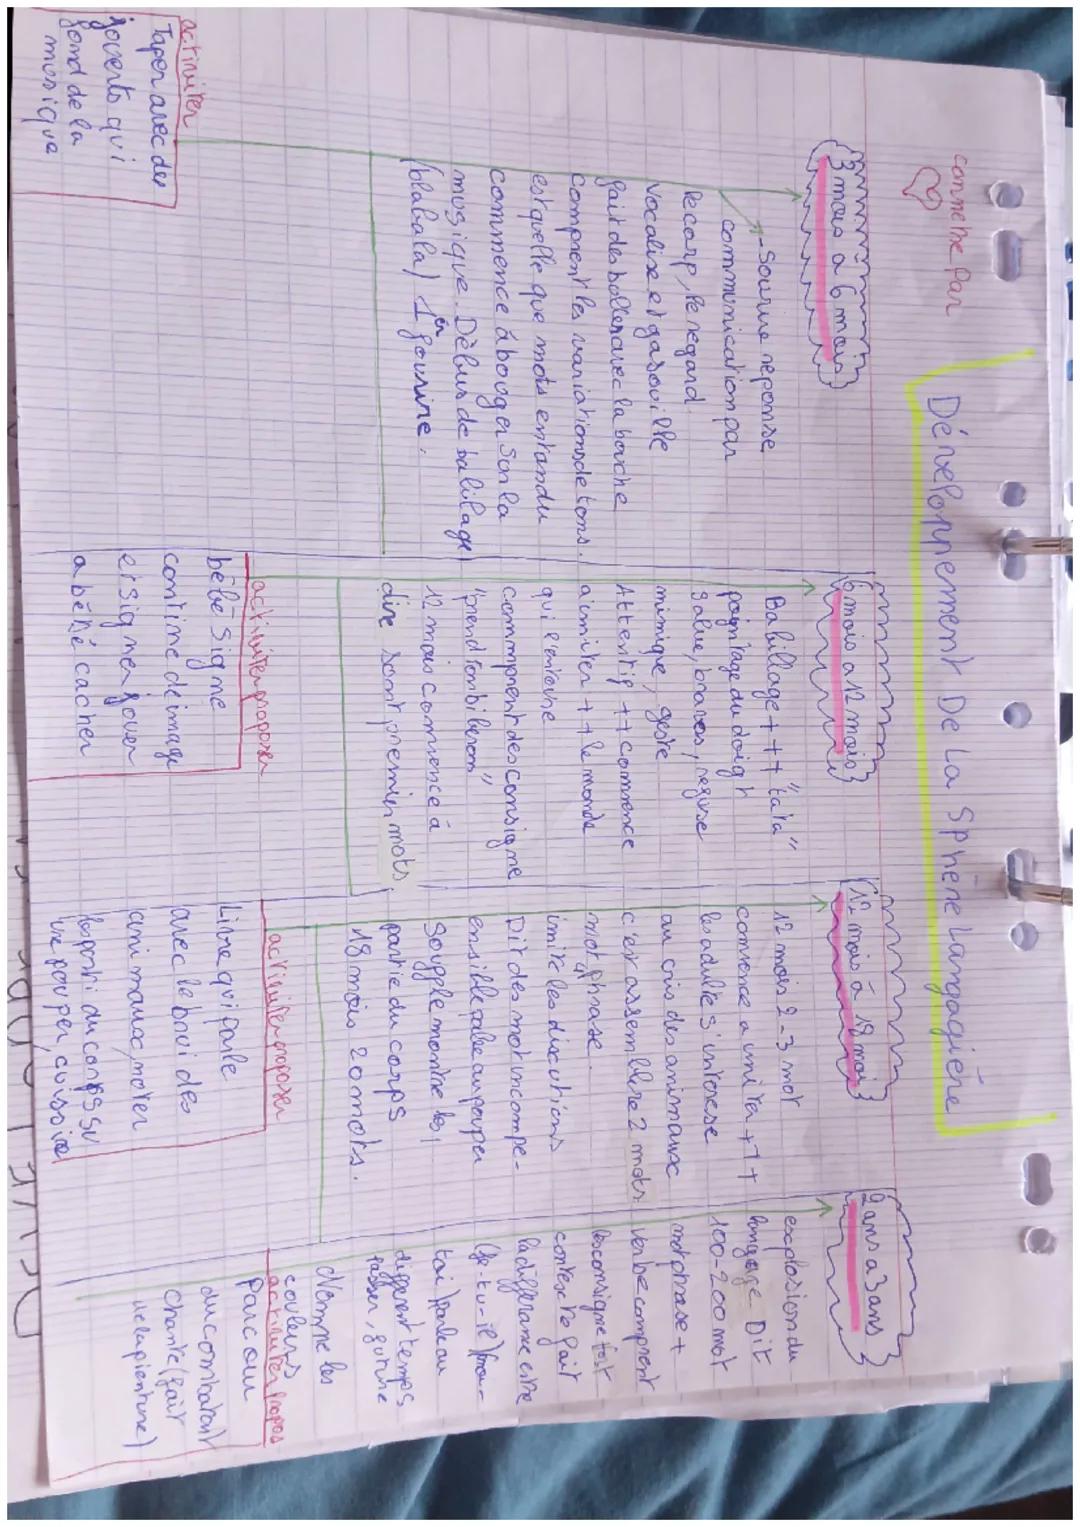 Dévelopnement De La Sphère Langagière
connetre par
3 mois a 6 mois
- Sourire reponse
communication par
le corp, le regard
vocalise et gasouille
fait des bulles avec la bouche
comprent les variations de tons.
est quelle que mots entandu
commence à bouger sur la
musique. Début de balilage
(blabala) 1er fourire.
activiter
Taper avec des
jouents qui
fond de la
musique
6 mois a 12 mois
Babilage +++ "tata"
pointage du doigt
salue, bravos, refuse
mimique, geste
Attentif ++ commence
a imiter ++ le monde
qui l'entoure
commprent des consigne
"prend ton biberon"
12 mois commence à
dire sont premier mots.
activiter proposer
bébé signe
contine de image
et signer jouer
a bébé cacher
12 mois à 18 mois
12 mois 2-3 mot
comence a imita +++
les adultes s'interese
au cris des animause
c'est assemblere 2 mots
mot, phrase.
imite les discutions
Dit des mot incompe-
ensible parle au poupei
Souffle montre les
partie du corps
18 mois 20 mots.
activiter proposer
Livre qui parle
avec le brui des
animauax, moter
les parti du corps su
une poupen, cuisoire
2 ans a 3 ans
explosion du
langage Dit
100-200 mot
mot phrase +
verbe comprent
les consigne fait
contes te fait
la différance entre
(je-tu-il) (moi-
toi) parle au
different temps
passer, future
Nomme les
couleurs
activiter propos
parcour
du combatant
chante (fait